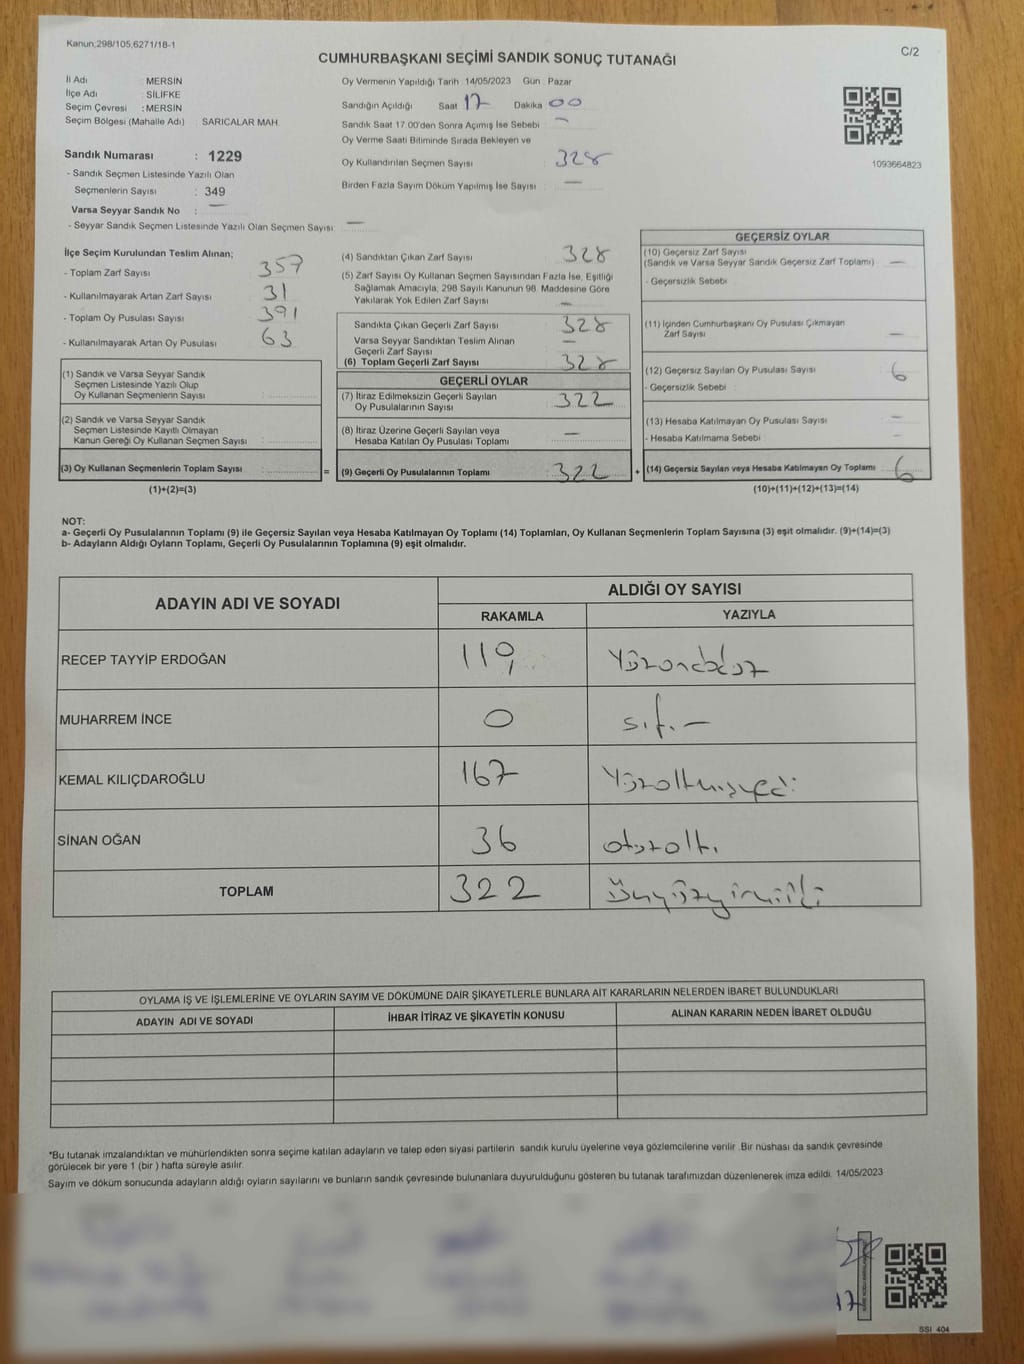 Kanun;298/105,6271/18-1
C/2
CUMHURBAŞKANI SEÇİMİ SANDIK SONUÇ TUTANAĞI
İl Adı : MERSİN
İlçe Adı : SİLİFKE
Seçim Çevresi : MERSİN
Seçim Bölgesi (Mahalle Adı) : SARICALAR MAH.
Sandık Numarası : 1229
- Sandık Seçmen Listesinde Yazılı Olan
Seçmenlerin Sayısı : 349
Varsa Seyyar Sandık No : —
- Seyyar Sandık Seçmen Listesinde Yazılı Olan Seçmen Sayısı : —
Oy Vermenin Yapıldığı Tarih : 14/05/2023 Gün : Pazar
Sandığın Açıldığı Saat 17 Dakika 00
Sandık Saat 17.00'den Sonra Açımış İse Sebebi : —
Oy Verme Saati Bitiminde Sırada Bekleyen ve
Oy Kullandırılan Seçmen Sayısı : 328
Birden Fazla Sayım Döküm Yapılmış İse Sayısı : —
1093664823
İlçe Seçim Kurulundan Teslim Alınan;
- Toplam Zarf Sayısı : 357
- Kullanılmayarak Artan Zarf Sayısı : 31
- Toplam Oy Pusulası Sayısı : 391
- Kullanılmayarak Artan Oy Pusulası : 63
(1) Sandık ve Varsa Seyyar Sandık
Seçmen Listesinde Yazılı Olup
Oy Kullanan Seçmenlerin Sayısı :
(2) Sandık ve Varsa Seyyar Sandık
Seçmen Listesinde Kayıtlı Olmayan
Kanun Gereği Oy Kullanan Seçmen Sayısı :
(3) Oy Kullanan Seçmenlerin Toplam Sayısı :
(1)+(2)=(3)
(4) Sandıktan Çıkan Zarf Sayısı : 328
(5) Zarf Sayısı Oy Kullanan Seçmen Sayısından Fazla İse, Eşitliği
Sağlamak Amacıyla, 298 Sayılı Kanunun 98. Maddesine Göre
Yakılarak Yok Edilen Zarf Sayısı : —
Sandıkta Çıkan Geçerli Zarf Sayısı : 328
Varsa Seyyar Sandıktan Teslim Alınan
Geçerli Zarf Sayısı : —
(6) Toplam Geçerli Zarf Sayısı : 328
GEÇERLİ OYLAR
(7) İtiraz Edilmeksizin Geçerli Sayılan
Oy Pusulalarının Sayısı : 322
(8) İtiraz Üzerine Geçerli Sayılan veya
Hesaba Katılan Oy Pusulası Toplamı : —
= (9) Geçerli Oy Pusulalarının Toplamı : 322 +
GEÇERSİZ OYLAR
(10) Geçersiz Zarf Sayısı
(Sandık ve Varsa Seyyar Sandık Geçersiz Zarf Toplamı) : —
- Geçersizlik Sebebi :
(11) İçinden Cumhurbaşkanı Oy Pusulası Çıkmayan
Zarf Sayısı : —
(12) Geçersiz Sayılan Oy Pusulası Sayısı : 6
- Geçersizlik Sebebi :
(13) Hesaba Katılmayan Oy Pusulası Sayısı : —
- Hesaba Katılmama Sebebi : —
(14) Geçersiz Sayılan veya Hesaba Katılmayan Oy Toplamı : 6
(10)+(11)+(12)+(13)=(14)
NOT:
a- Geçerli Oy Pusulalarının Toplamı (9) ile Geçersiz Sayılan veya Hesaba Katılmayan Oy Toplamı (14) Toplamları, Oy Kullanan Seçmenlerin Toplam Sayısına (3) eşit olmalıdır. (9)+(14)=(3)
b- Adayların Aldığı Oyların Toplamı, Geçerli Oy Pusulalarının Toplamına (9) eşit olmalıdır.
ADAYIN ADI VE SOYADI
ALDIĞI OY SAYISI
RAKAMLA YAZIYLA
RECEP TAYYİP ERDOĞAN 119 Yüzondokuz
MUHARREM İNCE 0 Sıfır
KEMAL KILIÇDAROĞLU 167 Yüzaltmışyedi
SİNAN OĞAN 36 otuzaltı
TOPLAM 322 Üçyüzyirmiiki
OYLAMA İŞ VE İŞLEMLERİNE VE OYLARIN SAYIM VE DÖKÜMÜNE DAİR ŞİKAYETLERLE BUNLARA AİT KARARLARIN NELERDEN İBARET BULUNDUKLARI
ADAYIN ADI VE SOYADI İHBAR İTİRAZ VE ŞİKAYETİN KONUSU ALINAN KARARIN NEDEN İBARET OLDUĞU
*Bu tutanak imzalandıktan ve mühürlendikten sonra seçime katılan adayların ve talep eden siyasi partilerin sandık kurulu üyelerine veya gözlemcilerine verilir. Bir nüshası da sandık çevresinde
görülecek bir yere 1 (bir ) hafta süreyle asılır.
Sayım ve döküm sonucunda adayların aldığı oyların sayılarını ve bunların sandık çevresinde bulunanlara duyurulduğunu gösteren bu tutanak tarafımızdan düzenlenerek imza edildi. 14/05/2023
SSI_404